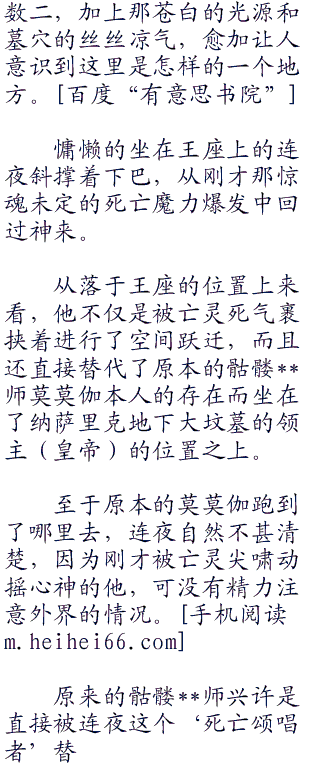 数二，加上那苍白的光源和
墓穴的丝丝凉气，愈加让人
意识到这里是怎样的一个地
方。[百度“有意思书院”]
慵懒的坐在王座上的连
夜斜撑着下巴，从刚才那惊
魂未定的死亡魔力爆发中回
过神来。
从落于王座的位置上来
看，他不仅是被亡灵死气裹
挟着进行了空间跃迁，而且
还直接替代了原本的骷髅**
师莫莫伽本人的存在而坐在
了纳萨里克地下大坟墓的领
主（皇帝）的位置之上。
至于原本的莫莫伽跑到
了哪里去，连夜自然不甚清
楚，因为刚才被亡灵尖啸动
摇心神的他，可没有精力注
意外界的情况。[手机阅读
m.heihei66.com]
原来的骷髅**师兴许是
直接被连夜这个‘死亡颂唱
者’替